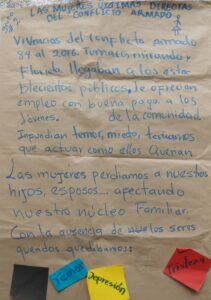 LAS MUJERES VICTIMAS DIRECTAS
DEL CONFLICTO ARMADO
Vivencias del conflicto armado
84 al 2016. Tumaco, miranda y
Florida llegaban a los esta-
blecimientos publicos, le ofrecian
empleo con buena paga a los
Jovenes. de la comunidad
Infundian temor, miedo, teniamos
que actuar como ellos Querian.
Las mujeres perdiamos a nuestros
hijos, esposos... afectando
nuestro núcleo Familiar.
Con la ausencia de nuestros seres
queridos quedabamos:
Temor
Depresión
Tristeza